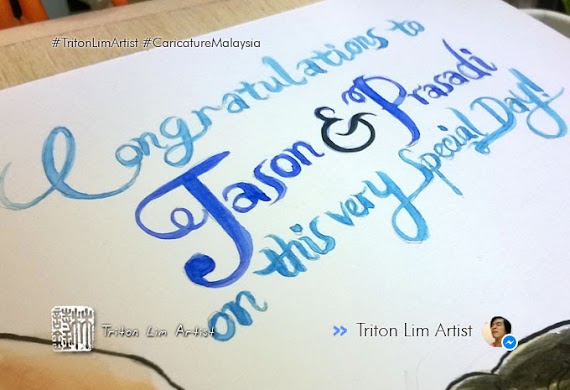 #TritonLimArtist #CaricatureMalaysia
Congratulations to
Jason & Prasadi
on this very Special Day!
Triton Lim Artist
» Triton Lim Artist